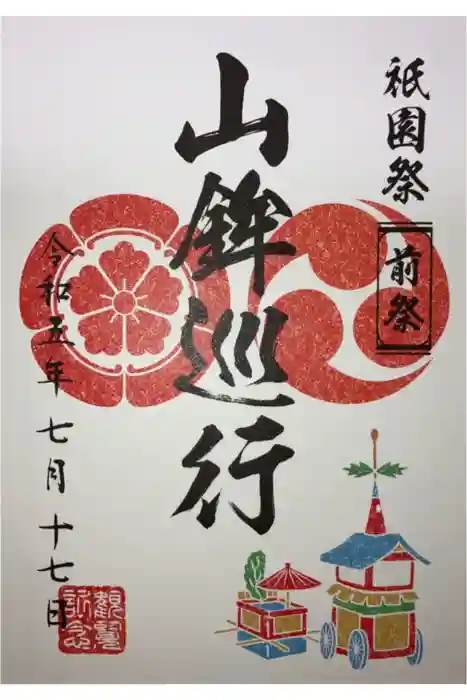 祇園祭
前祭
山鉾巡行
令和五年七月十七日
観覧
記念